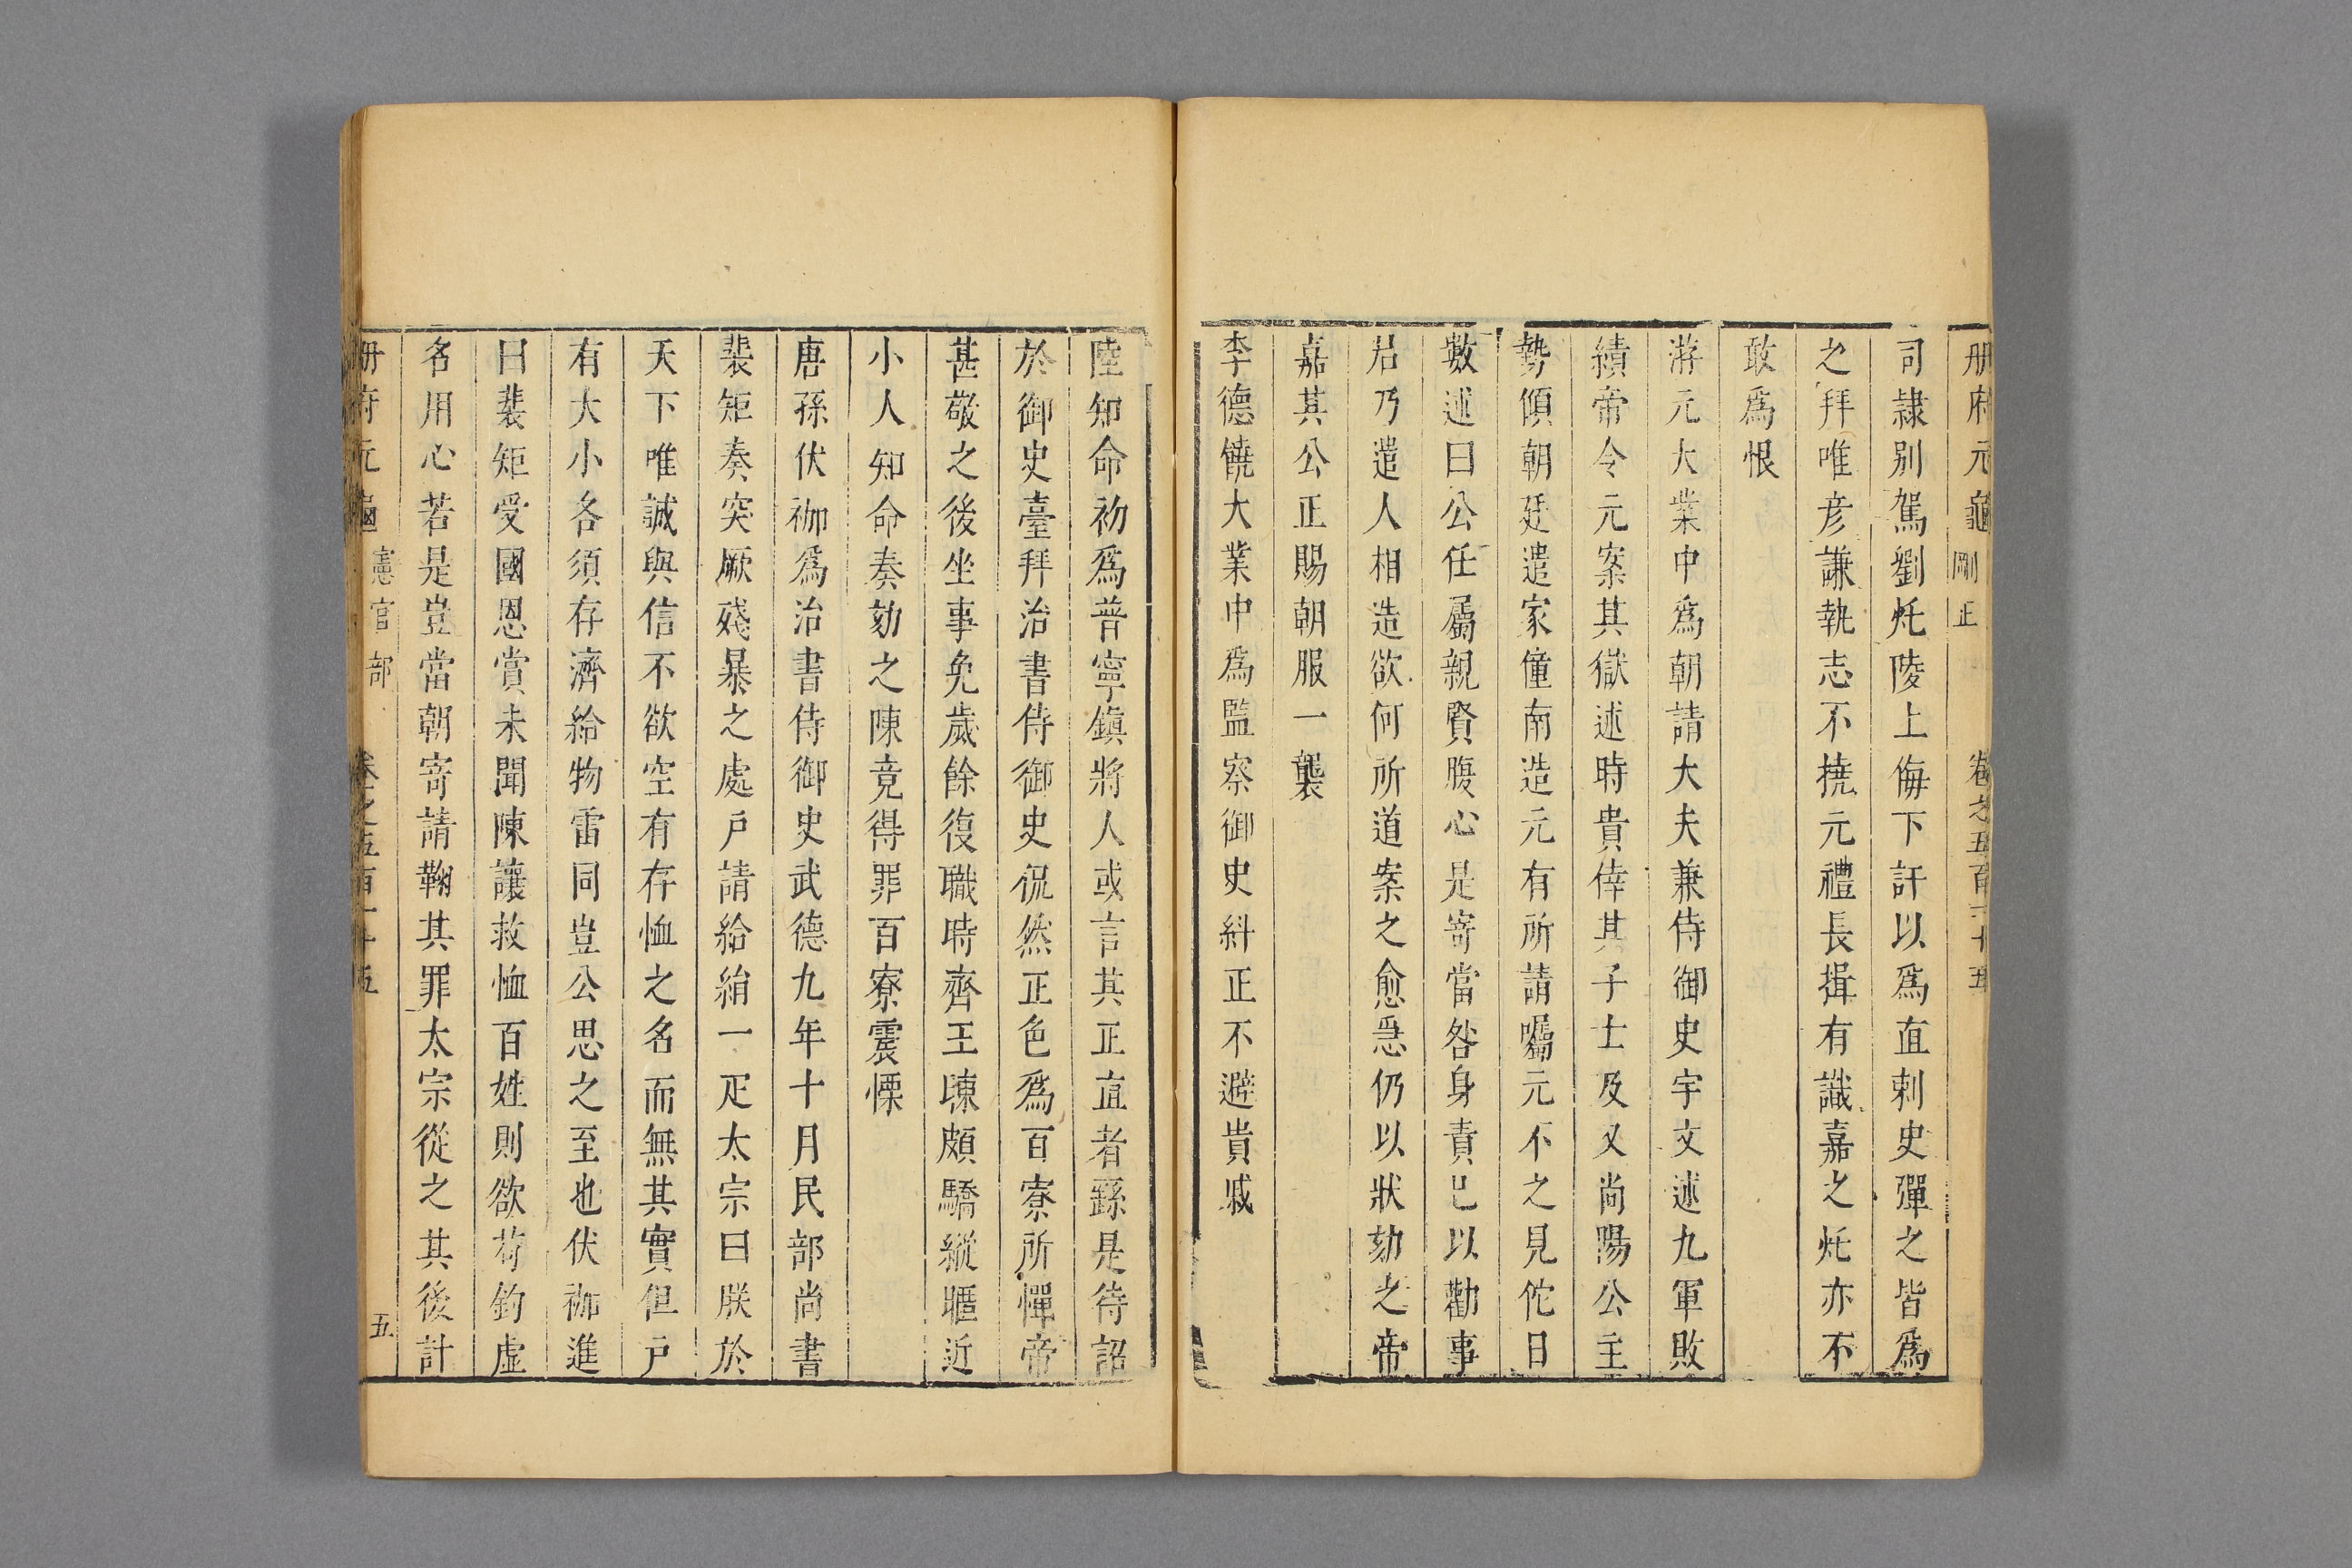 册府元龜 剛正 卷之五百一十五
司隸別駕劉炛陵上侮下訐以爲直刺史彈之皆爲
之拜唯彦謙執志不撓元禮長揖有識嘉之炛亦不
敢爲恨
游元大業中爲朝請大夫兼侍御史宇文述九軍敗
績帝令元案其獄述時貴倖其子士及又尚陽公主
勢傾朝廷遣家僮南造元有所請囑元不之見佗日
數述曰公任屬親賢腹心是寄當咎身責巳以勸事
君乃遣人相造欲何所道案之愈急仍以狀劾之帝
嘉其公正賜朝服一襲
李德饒大業中爲監察御史糾正不避貴戚
陸知命初爲普寧鎮將人或言其正直者繇是待詔
於御史臺拜治書侍御史侃然正色爲百寮所憚帝
甚敬之後坐事免歲餘復職時齊王暕頗驕縱暱近
小人知命奏劾之暕竟得罪百寮震慄
唐孫伏伽爲治書侍御史武德九年十月民部尚書
裴矩奏突厥殘暴之處戸請給絹一疋太宗曰朕於
天下唯誠與信不欲空有存恤之名而無其實但戸
有大小各須存濟給物雷同豈公思之至也伏伽進
曰裴矩受國恩賞未聞陳讓救恤百姓則欲苟釣虛
名用心若是豈當朝寄請鞫其罪太宗從之其後計
册府元龜 憲官部 卷之五百一十五 五